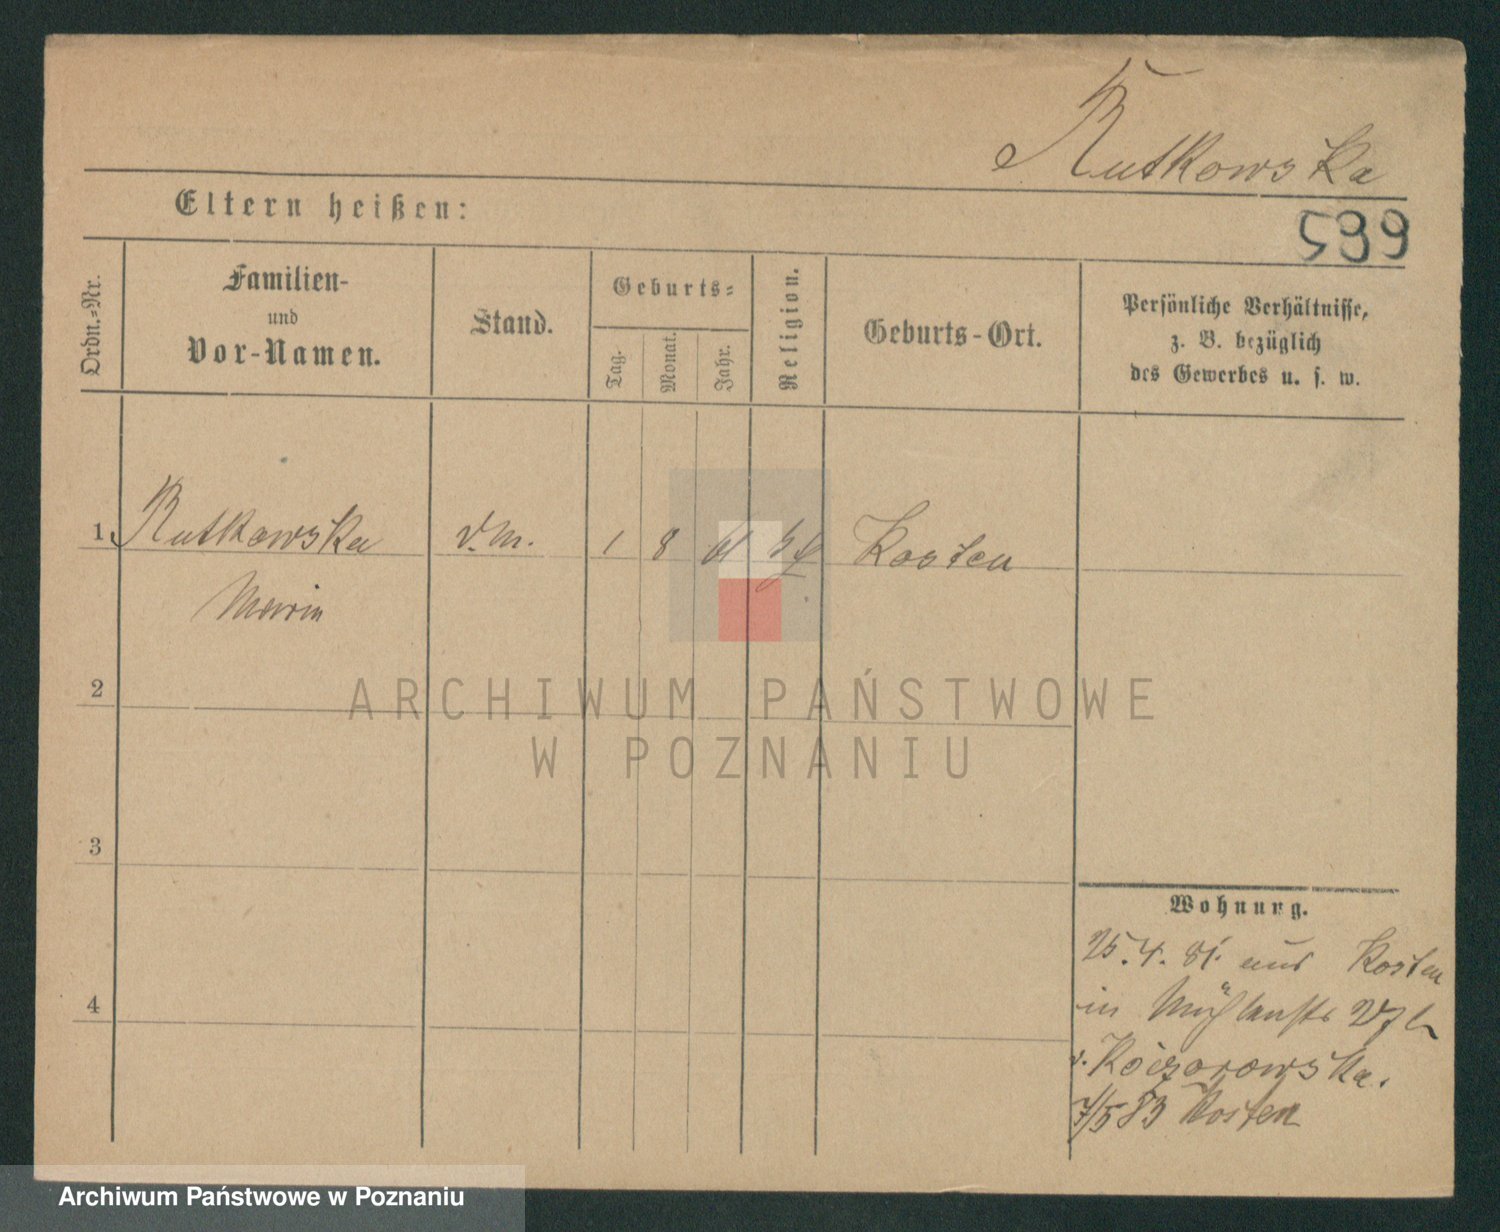 Rutkowska
Eltern heißen:
599
Ordn.-Nr.
Familien-
und
Vor-Namen.
Stand.
Geburts-
Tag.
Monat.
Jahr.
Religion.
Geburts-Ort.
Persönliche Verhältnisse,
z. B. bezüglich
des Gewerbes u. s. w.
1 Rutkowska 1 8 61 Kosten
Marie
2
ARCHIWUM PAŃSTWOWE
W POZNANIU
3
Wohnung.
25.4.81. aus Kosten
4
in Mühlenstr
v. Koczorowska.
7/5 83 Kosten
Archiwum Państwowe w Poznaniu